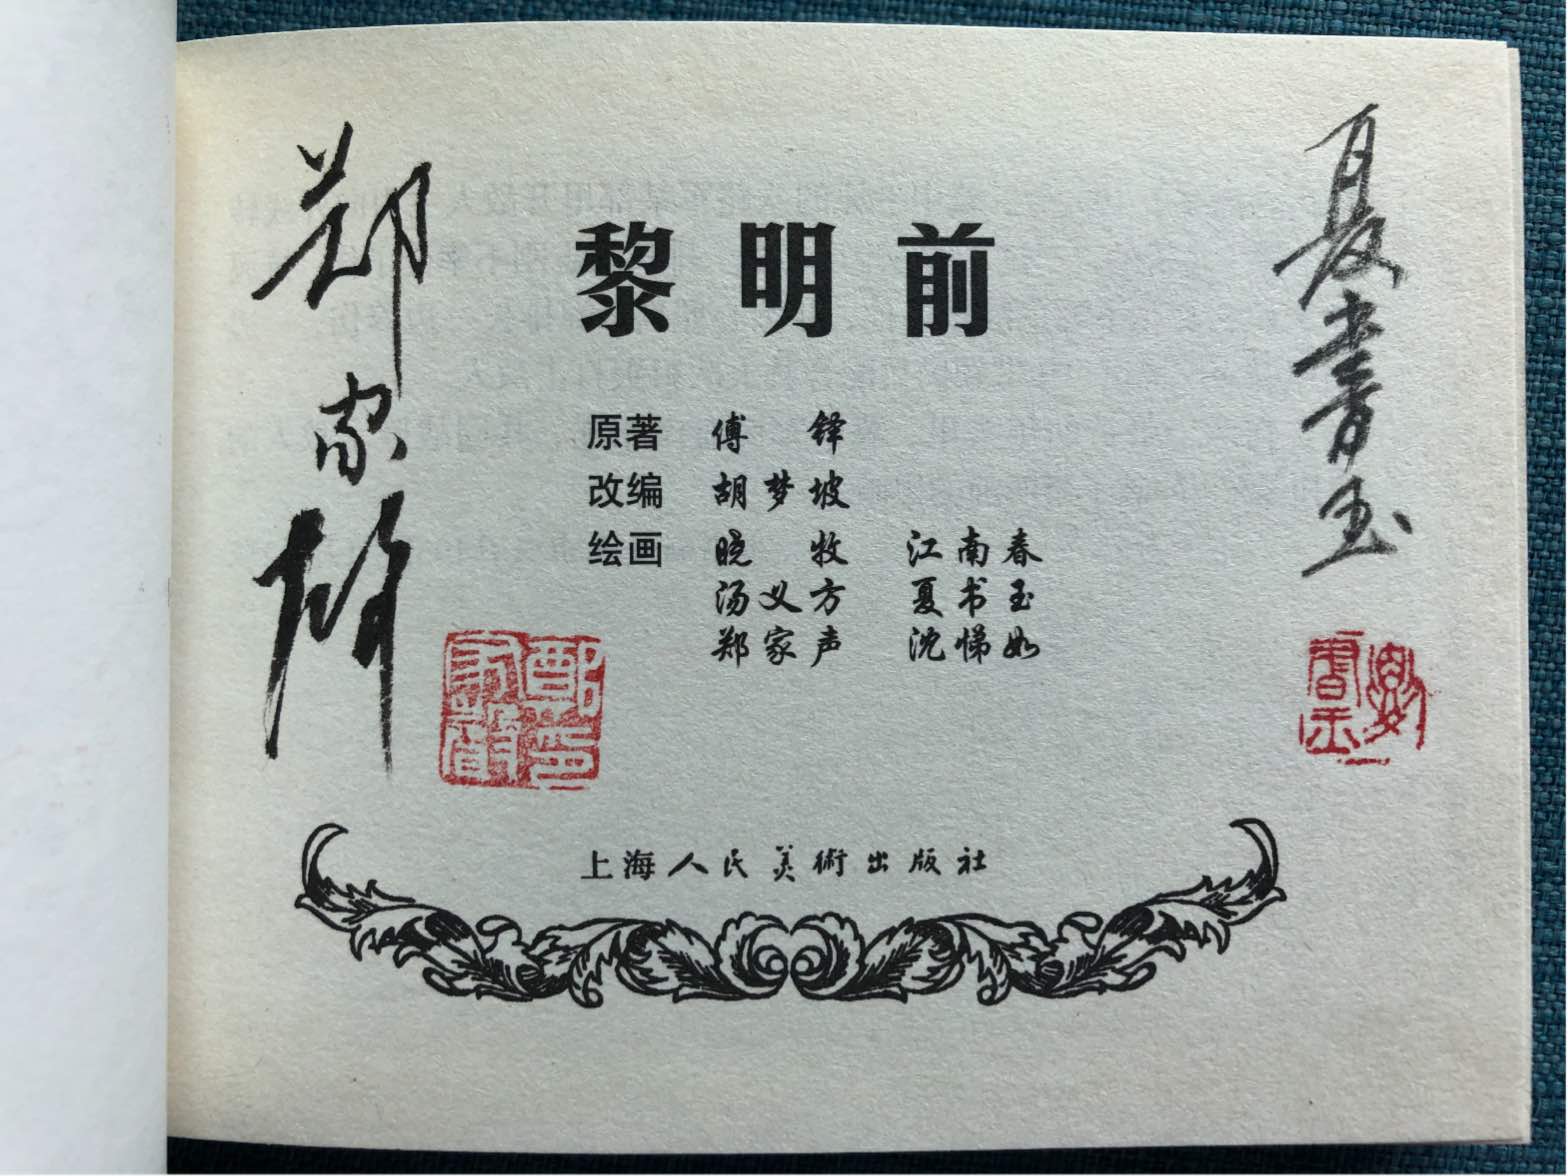 黎明前
原著 傅铎
改编 胡梦坡
绘画 晓牧 江南春
汤义方 夏书玉
郑家声 沈悌如
上海人民美術出版社
郑家声
夏書玉
鄭家聲印
夏書玉